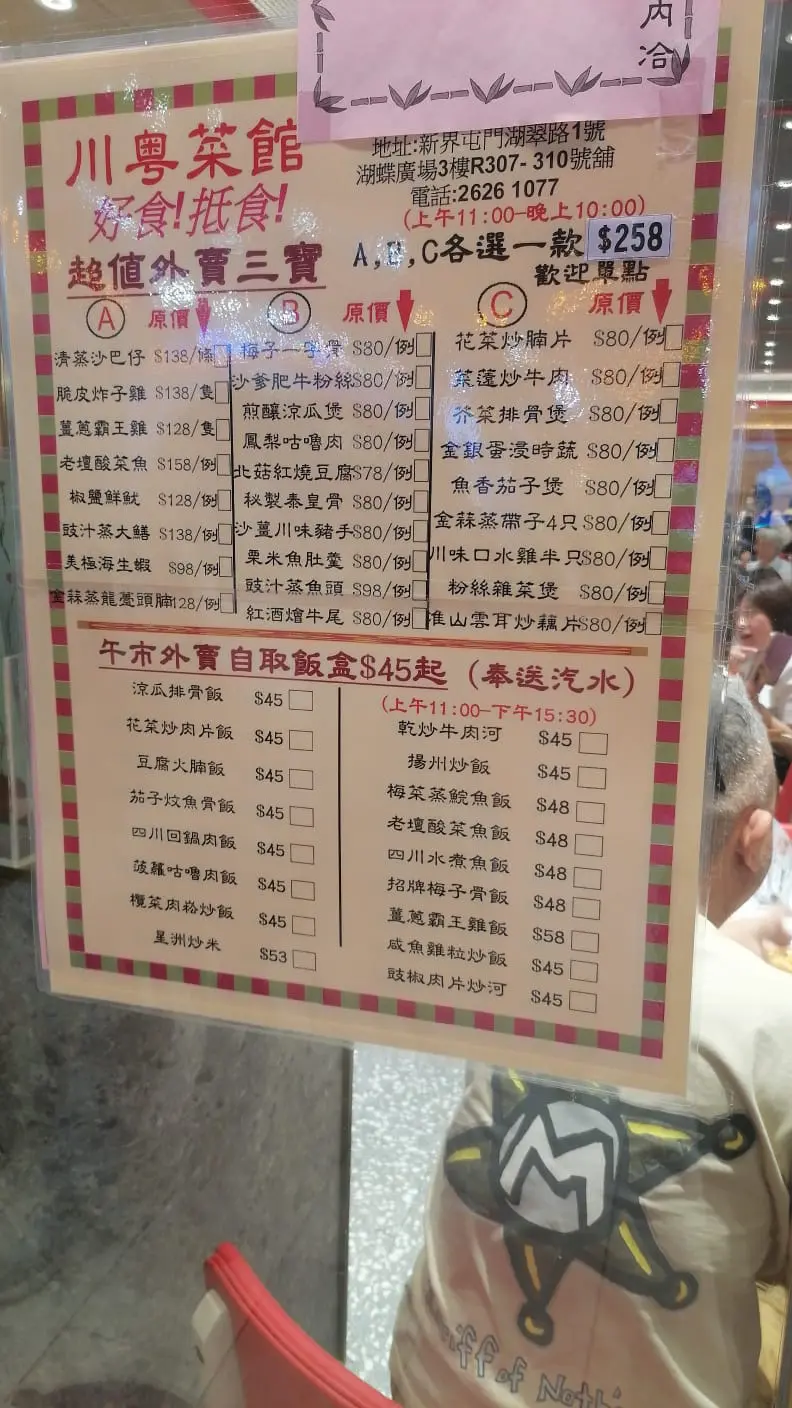 內
洽
川粵菜館
好食!抵食!
地址:新界屯門湖翠路1號
湖蝶廣場3樓R307-310號舖
電話:2626 1077
(上午11:00-晚上10:00)
超值外賣三寶
A,B,C各選一款 $258
歡迎單點
A 原價
清蒸沙巴仔 $138/條
脆皮炸子雞 $138/隻
薑蔥霸王雞 $128/隻
老壇酸菜魚 $158/例
椒鹽鮮魷 $128/例
豉汁蒸大鱔 $138/例
美極海生蝦 $98/例
金蒜蒸龍躉頭腩128/例
B 原價
梅子一字骨 $80/例
沙爹肥牛粉絲$80/例
煎釀涼瓜煲 $80/例
鳳梨咕嚕肉 $80/例
北菇紅燒豆腐$78/例
秘製泰皇骨 $80/例
沙薑川味豬手$80/例
粟米魚肚羹 $80/例
豉汁蒸魚頭 $98/例
紅酒燴牛尾 $80/例
C 原價
花菜炒腩片 $80/例
菜薳炒牛肉 $80/例
芥菜排骨煲 $80/例
金銀蛋浸時蔬 $80/例
魚香茄子煲 $80/例
金蒜蒸帶子4只$80/例
川味口水雞半只$80/例
粉絲雜菜煲 $80/例
淮山雲耳炒藕片$80/例
午市外賣自取飯盒$45起 (奉送汽水)
(上午11:00-下午15:30)
涼瓜排骨飯 $45
花菜炒肉片飯 $45
豆腐火腩飯 $45
茄子炆魚骨飯 $45
四川回鍋肉飯 $45
菠蘿咕嚕肉飯 $45
欖菜肉崧炒飯 $45
星洲炒米 $53
乾炒牛肉河 $45
揚州炒飯 $45
梅菜蒸鯇魚飯 $48
老壇酸菜魚飯 $48
四川水煮魚飯 $48
招牌梅子骨飯 $48
薑蔥霸王雞飯 $58
咸魚雞粒炒飯 $45
豉椒肉片炒河 $45
M